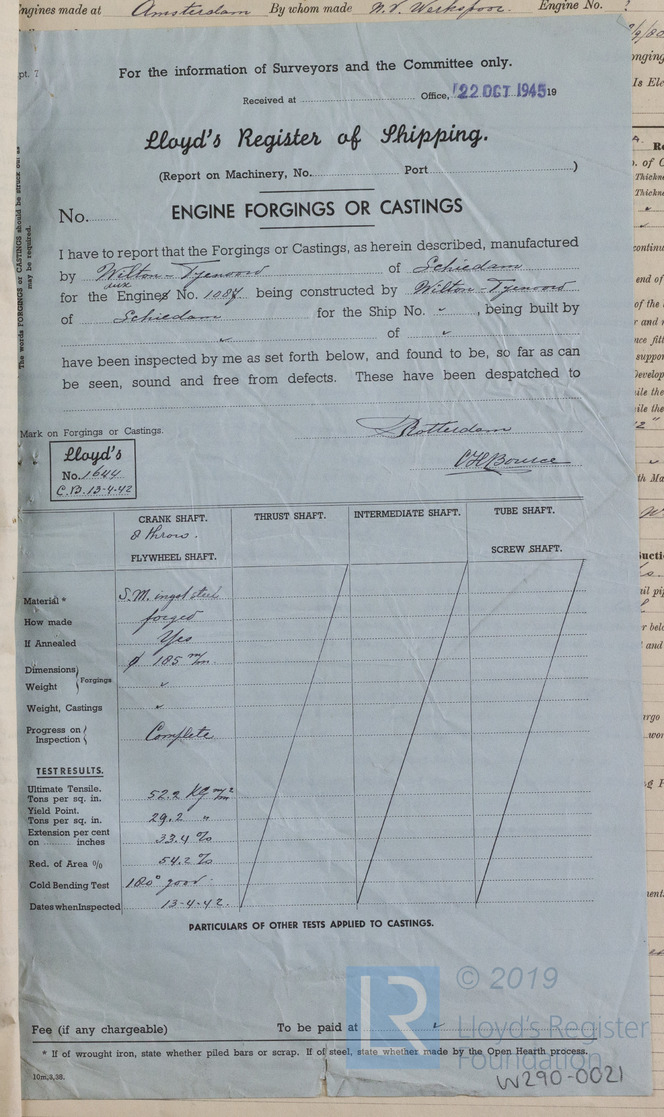 Engines made at Amsterdam By whom made N.V. Werkspoor. Engine No. ?
For the information of Surveyors and the Committee only.
Received at Office, 22 OCT 1945 19
Lloyd's Register of Shipping.
(Report on Machinery, No. Port )
No. ENGINE FORGINGS OR CASTINGS
The words FORGINGS or CASTINGS should be struck out as
may be required.
I have to report that the Forgings or Castings, as herein described, manufactured
by Wilton-Fyenoord of Schiedam
aux
for the Engines No. 1087 being constructed by Wilton-Fyenoord
of Schiedam for the Ship No. ✓, being built by
✓ of ✓
have been inspected by me as set forth below, and found to be, so far as can
be seen, sound and free from defects. These have been despatched to
Mark on Forgings or Castings.
Rotterdam
Lloyd's
No. 1644
C.B. 13-4-42
CRANK SHAFT. THRUST SHAFT. INTERMEDIATE SHAFT. TUBE SHAFT.
8 throw.
FLYWHEEL SHAFT. SCREW SHAFT.
Material * S.M. ingot steel
How made forged
If Annealed Yes
Dimensions ø 185 m/m.
Forgings
Weight ✓
Weight, Castings ✓
Progress on
Inspection Complete
TEST RESULTS.
Ultimate Tensile.
Tons per sq. in. 52.2 KG m/m²
Yield Point.
Tons per sq. in. 29.2 "
Extension per cent
on inches 33.4 %
Red. of Area % 54.2 %
Cold Bending Test 180° good.
Dates when Inspected 13-4-42.
PARTICULARS OF OTHER TESTS APPLIED TO CASTINGS.
Fee (if any chargeable) To be paid at ✓
* If of wrought iron, state whether piled bars or scrap. If of steel, state whether made by the Open Hearth process.
10m,3,38.
© 2019
LR
Lloyd's Register
Foundation
W290-0021